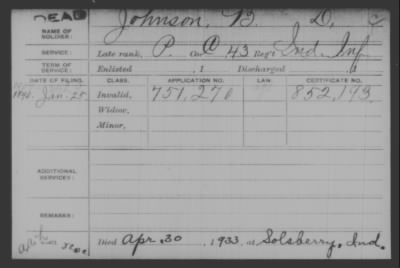 DEAD
NAME OF SOLDIER: Johnson, B. D.
SERVICE: Late rank, P. Co. C 43 Reg't Ind. Inf.
TERM OF SERVICE: Enlisted , 1 Discharged , 1
DATE OF FILING. CLASS. APPLICATION NO. LAW. CERTIFICATE NO.
1890, Jan. 25 Invalid, 751,270 852,193
Widow,
Minor,
ADDITIONAL SERVICES:
REMARKS:
Died Apr. 30 , 1933, at Solsberry, Ind.